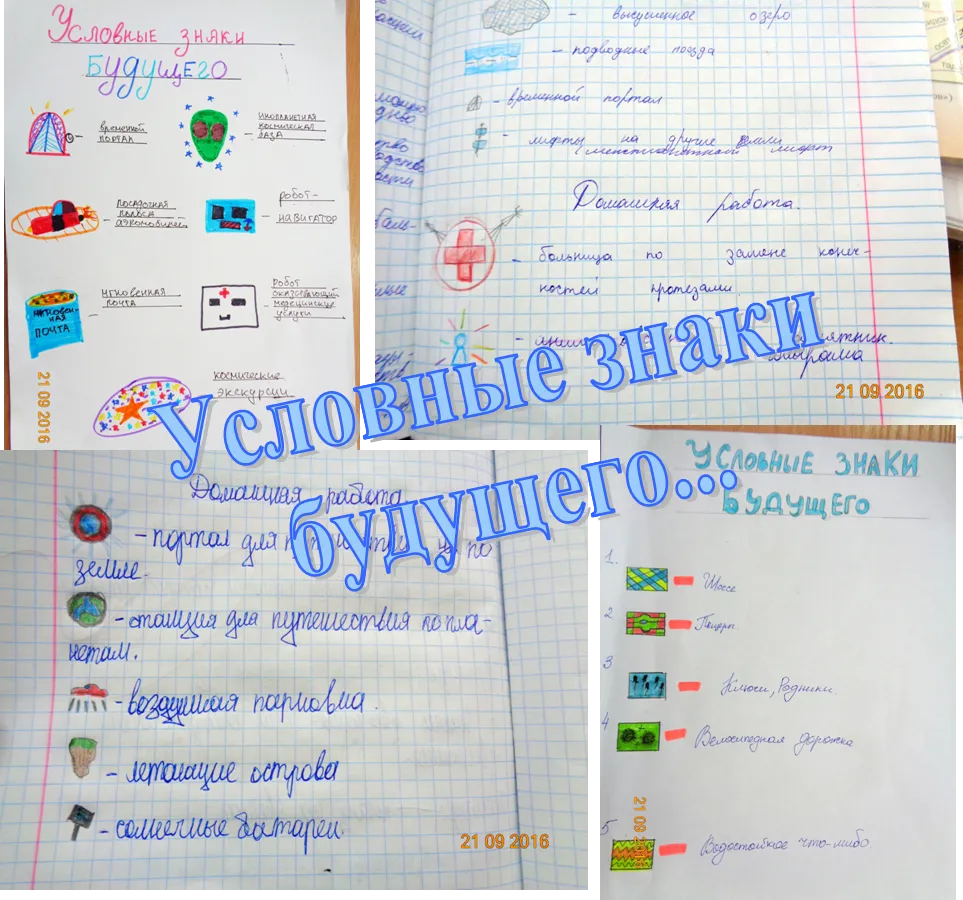 Условные знаки
будущего
временной
портал
инопланетная
космическая
база
посадочная
полоса
аэромобилей
робот-
навигатор
мгновенная
почта
мгновен-
ная
почта
робот
оказывающий
медицинские
услуги
космические
экскурсии
21 09 2016
- высушенное озеро
- подводные поезда
- временной портал
- лифты на другие земли
лифт
Домашняя работа.
- больница по замене конеч-
ностей протезами
21 09 2016
Условные знаки
будущего...
Домашняя работа
- портал для по
земле.
- станция для путешествия по пла-
нетам.
- воздушная парковка.
- летающие острова
- солнечные батареи.
21 09 2016
Условные знаки
будущего
1. Шоссе
2
3 Ключи, Родники
4 Велосипедная дорожка
5 Водостойкое что-либо
21 09 2016